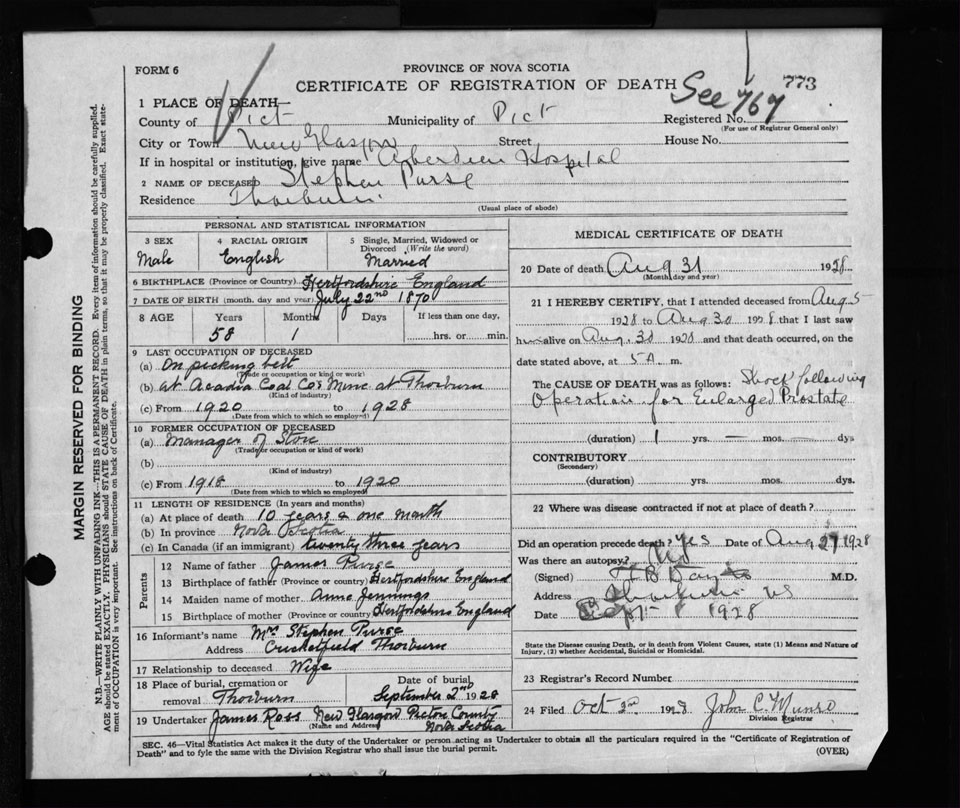 FORM 6
PROVINCE OF NOVA SCOTIA
CERTIFICATE OF REGISTRATION OF DEATH
See 767
773
1 PLACE OF DEATH—
County of Pict Municipality of Pict Registered No.
(For use of Registrar General only)
City or Town New Glasgow Street House No.
If in hospital or institution, give name Aberdeen Hospital
2 NAME OF DECEASED Stephen Purse
Residence Thorburn
(Usual place of abode)
MARGIN RESERVED FOR BINDING
N.B.—WRITE PLAINLY WITH UNFADING INK—THIS IS A PERMANENT RECORD. Every item of information should be carefully supplied.
AGE should be stated EXACTLY. PHYSICIANS should STATE CAUSE OF DEATH in plain terms, so that it may be properly classified. Exact state-
ment of OCCUPATION is very important. See instructions on back of Certificate.
PERSONAL AND STATISTICAL INFORMATION
3 SEX Male
4 RACIAL ORIGIN English
5 Single, Married, Widowed or Divorced (Write the word) Married
6 BIRTHPLACE (Province or Country) Hertfordshire England
7 DATE OF BIRTH (month, day and year) July 22nd 1870
8 AGE Years Months Days If less than one day,
58 1 hrs. or min.
9 LAST OCCUPATION OF DECEASED
(a) On picking belt
(Trade or occupation or kind of work)
(b) at Acadia Coal Co's Mine at Thorburn
(Kind of industry)
(c) From 1920 to 1928
(Date from which to which so employed)
10 FORMER OCCUPATION OF DECEASED
(a) Manager of Store
(Trade or occupation or kind of work)
(b)
(Kind of industry)
(c) From 1918 to 1920
(Date from which to which so employed)
11 LENGTH OF RESIDENCE (In years and months)
(a) At place of death 10 years & one month
(b) In province Nova Scotia
(c) In Canada (if an immigrant) twenty three years
Parents
12 Name of father James Purse
13 Birthplace of father (Province or country) Hertfordshire England
14 Maiden name of mother Anne Jennings
15 Birthplace of mother (Province or country) Hertfordshire England
16 Informant's name Mrs Stephen Purse
Address Cricketfield Thorburn
17 Relationship to deceased Wife
18 Place of burial, cremation or removal Thorburn
Date of burial September 2nd 1928
19 Undertaker James Ross New Glasgow Pictou County
(Name and Address) Nova Scotia
MEDICAL CERTIFICATE OF DEATH
20 Date of death Aug 31 1928
(Month, day and year)
21 I HEREBY CERTIFY, that I attended deceased from Aug 5
1928 to Aug 30 1928 that I last saw
him alive on Aug. 30 1928 and that death occurred, on the
date stated above, at 5 A. m.
The CAUSE OF DEATH was as follows: Shock following
Operation for Enlarged Prostate
(duration) 1 yrs. — mos. — dys
CONTRIBUTORY
(Secondary)
(duration) yrs. mos. dys.
22 Where was disease contracted if not at place of death?
Did an operation precede death? Yes Date of Aug 27 1928
Was there an autopsy? No
(Signed) M.D.
Address Thorburn NS
Date Sept 1 1928
State the Disease causing Death, or in death from Violent Causes, state (1) Means and Nature of
Injury, (2) whether Accidental, Suicidal or Homicidal.
23 Registrar's Record Number
24 Filed Oct 2nd 1928 John C. Munro
Division Registrar
SEC. 46—Vital Statistics Act makes it the duty of the Undertaker or person acting as Undertaker to obtain all the particulars required in the "Certificate of Registration of
Death" and to fyle the same with the Division Registrar who shall issue the burial permit.
(OVER)